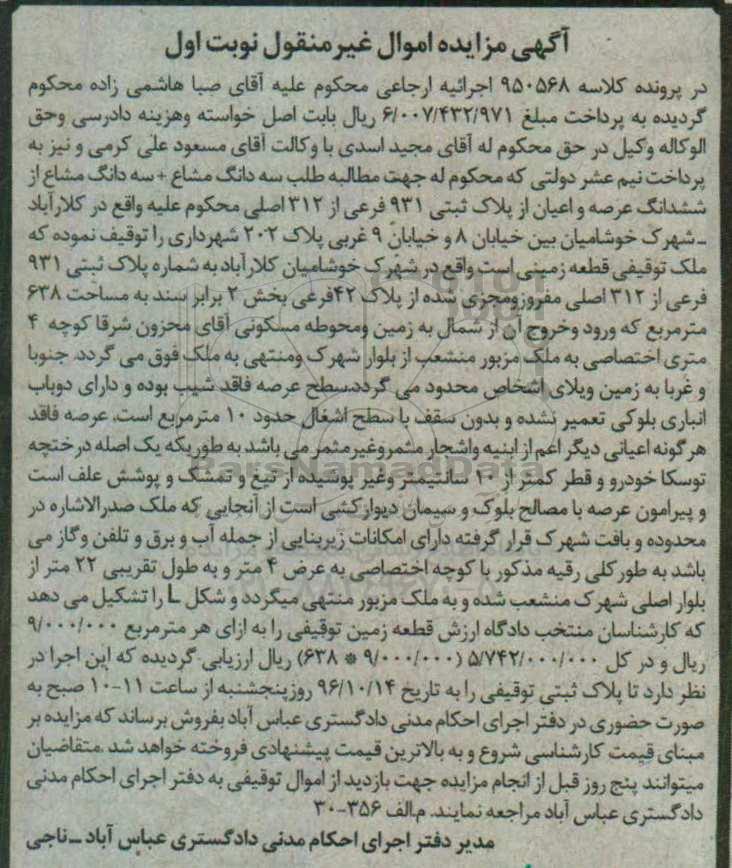 آگهی مزایده اموال غیرمنقول نوبت اول
در پرونده کلاسه ۹۵۰۵۶۸ اجرائیه ارجاعی محکوم علیه آقای صبا هاشمی زاده محکوم
گردیده به پرداخت مبلغ ۶/۰۰۷/۴۳۲/۹۷۱ ریال بابت اصل خواسته وهزینه دادرسی وحق
الوکاله وکیل در حق محکوم له آقای مجید اسدی با وکالت آقای مسعود علی کرمی و نیز به
پرداخت نیم عشر دولتی که محکوم له جهت مطالبه طلب سه دانگ مشاع + سه دانگ مشاع از
ششدانگ عرصه و اعیان از پلاک ثبتی ۹۳۱ فرعی از ۳۱۲ اصلی محکوم علیه واقع در کلارآباد
ـ شهرک خوشامیان بین خیابان ۸ و خیابان ۹ غربی پلاک ۲۰۲ شهرداری را توقیف نموده که
ملک توقیفی قطعه زمینی است واقع در شهرک خوشامیان کلارآباد به شماره پلاک ثبتی ۹۳۱
فرعی از ۳۱۲ اصلی مفروزومجزی شده از پلاک ۴۲فرعی بخش ۲ برابر سند به مساحت ۶۳۸
مترمربع که ورود وخروج آن از شمال به زمین ومحوطه مسکونی آقای محزون شرقا کوچه ۴
متری اختصاصی به ملک مزبور منشعب از بلوار شهرک ومنتهی به ملک فوق می گردد. جنوبا
و غربا به زمین ویلای اشخاص محدود می گردد.سطح عرصه فاقد شیب بوده و دارای دوباب
انباری بلوکی تعمیر نشده و بدون سقف با سطح اشغال حدود ۱۰ مترمربع است. عرصه فاقد
هرگونه اعیانی دیگر اعم از ابنیه واشجار مثمروغیرمثمر می باشد به طوریکه یک اصله درختچه
توسکا خودرو و قطر کمتر از ۱۰ سانتیمتر وغیر پوشیده از تیغ و تمشک و پوشش علف است
و پیرامون عرصه با مصالح بلوک و سیمان دیوارکشی است از آنجایی که ملک صدرالاشاره در
محدوده و بافت شهرک قرار گرفته دارای امکانات زیربنایی از جمله آب و برق و تلفن وگاز می
باشد به طور کلی رقبه مذکور با کوچه اختصاصی به عرض ۴ متر و به طول تقریبی ۲۲ متر از
بلوار اصلی شهرک منشعب شده و به ملک مزبور منتهی میگردد و شکل L را تشکیل می دهد
که کارشناسان منتخب دادگاه ارزش قطعه زمین توقیفی را به ازای هر مترمربع ۹/۰۰۰/۰۰۰
ریال و در کل ۵/۷۴۲/۰۰۰/۰۰۰ (۹/۰۰۰/۰۰۰ * ۶۳۸) ریال ارزیابی گردیده که این اجرا در
نظر دارد تا پلاک ثبتی توقیفی را به تاریخ ۹۶/۱۰/۱۴ روزپنجشنبه از ساعت ۱۱-۱۰ صبح به
صورت حضوری در دفتر اجرای احکام مدنی دادگستری عباس آباد بفروش برساند که مزایده بر
مبنای قیمت کارشناسی شروع و به بالاترین قیمت پیشنهادی فروخته خواهد شد .متقاضیان
میتوانند پنج روز قبل از انجام مزایده جهت بازدید از اموال توقیفی به دفتر اجرای احکام مدنی
دادگستری عباس آباد مراجعه نمایند. م.الف ۳۵۶-۳۰
مدیر دفتر اجرای احکام مدنی دادگستری عباس آباد ــ ناجی
ParsNamadData